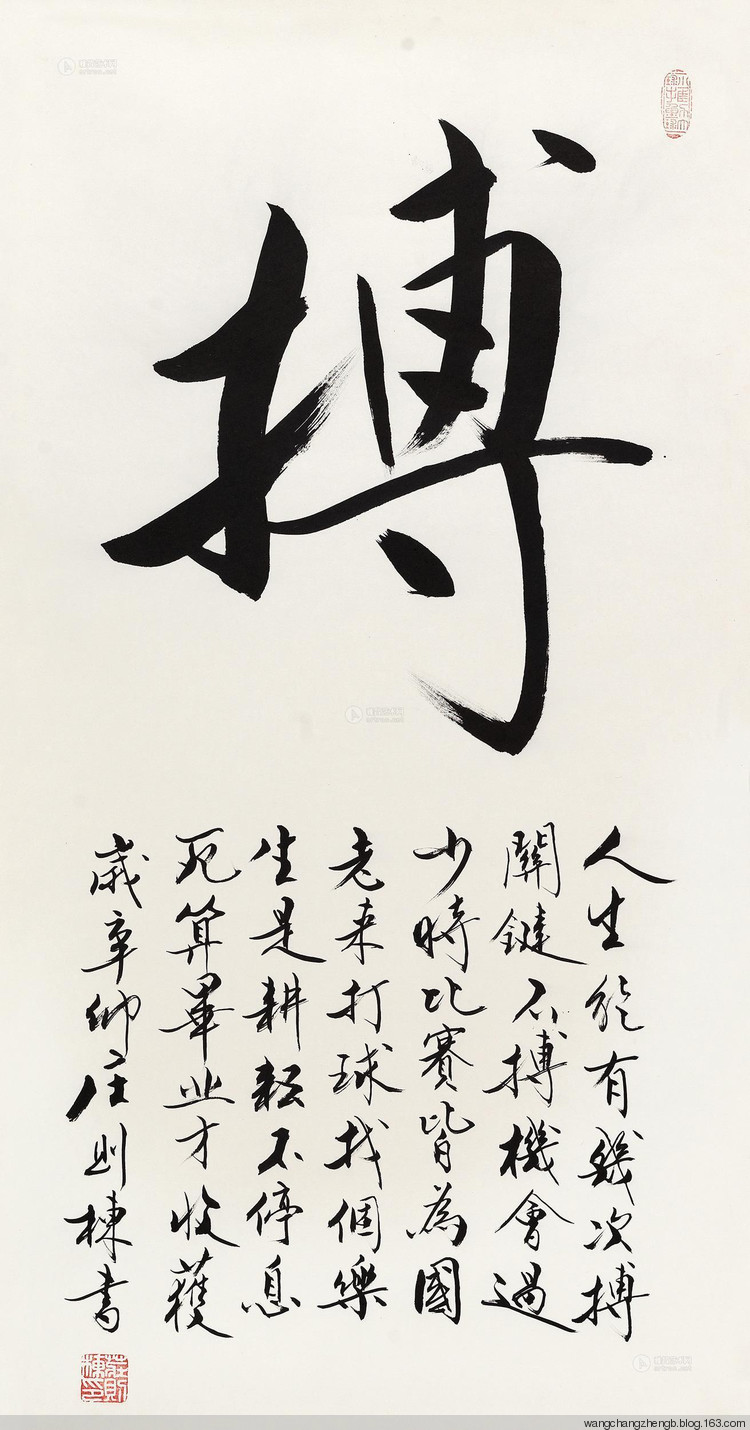 搏
人生能有幾次搏
關鍵不搏機會過
少時比賽皆為國
老来打球找個樂
生是耕耘不停息
死算畢业才收獲
庄则棟書
莊則棟印
wangchangzhengb.blog.163.com